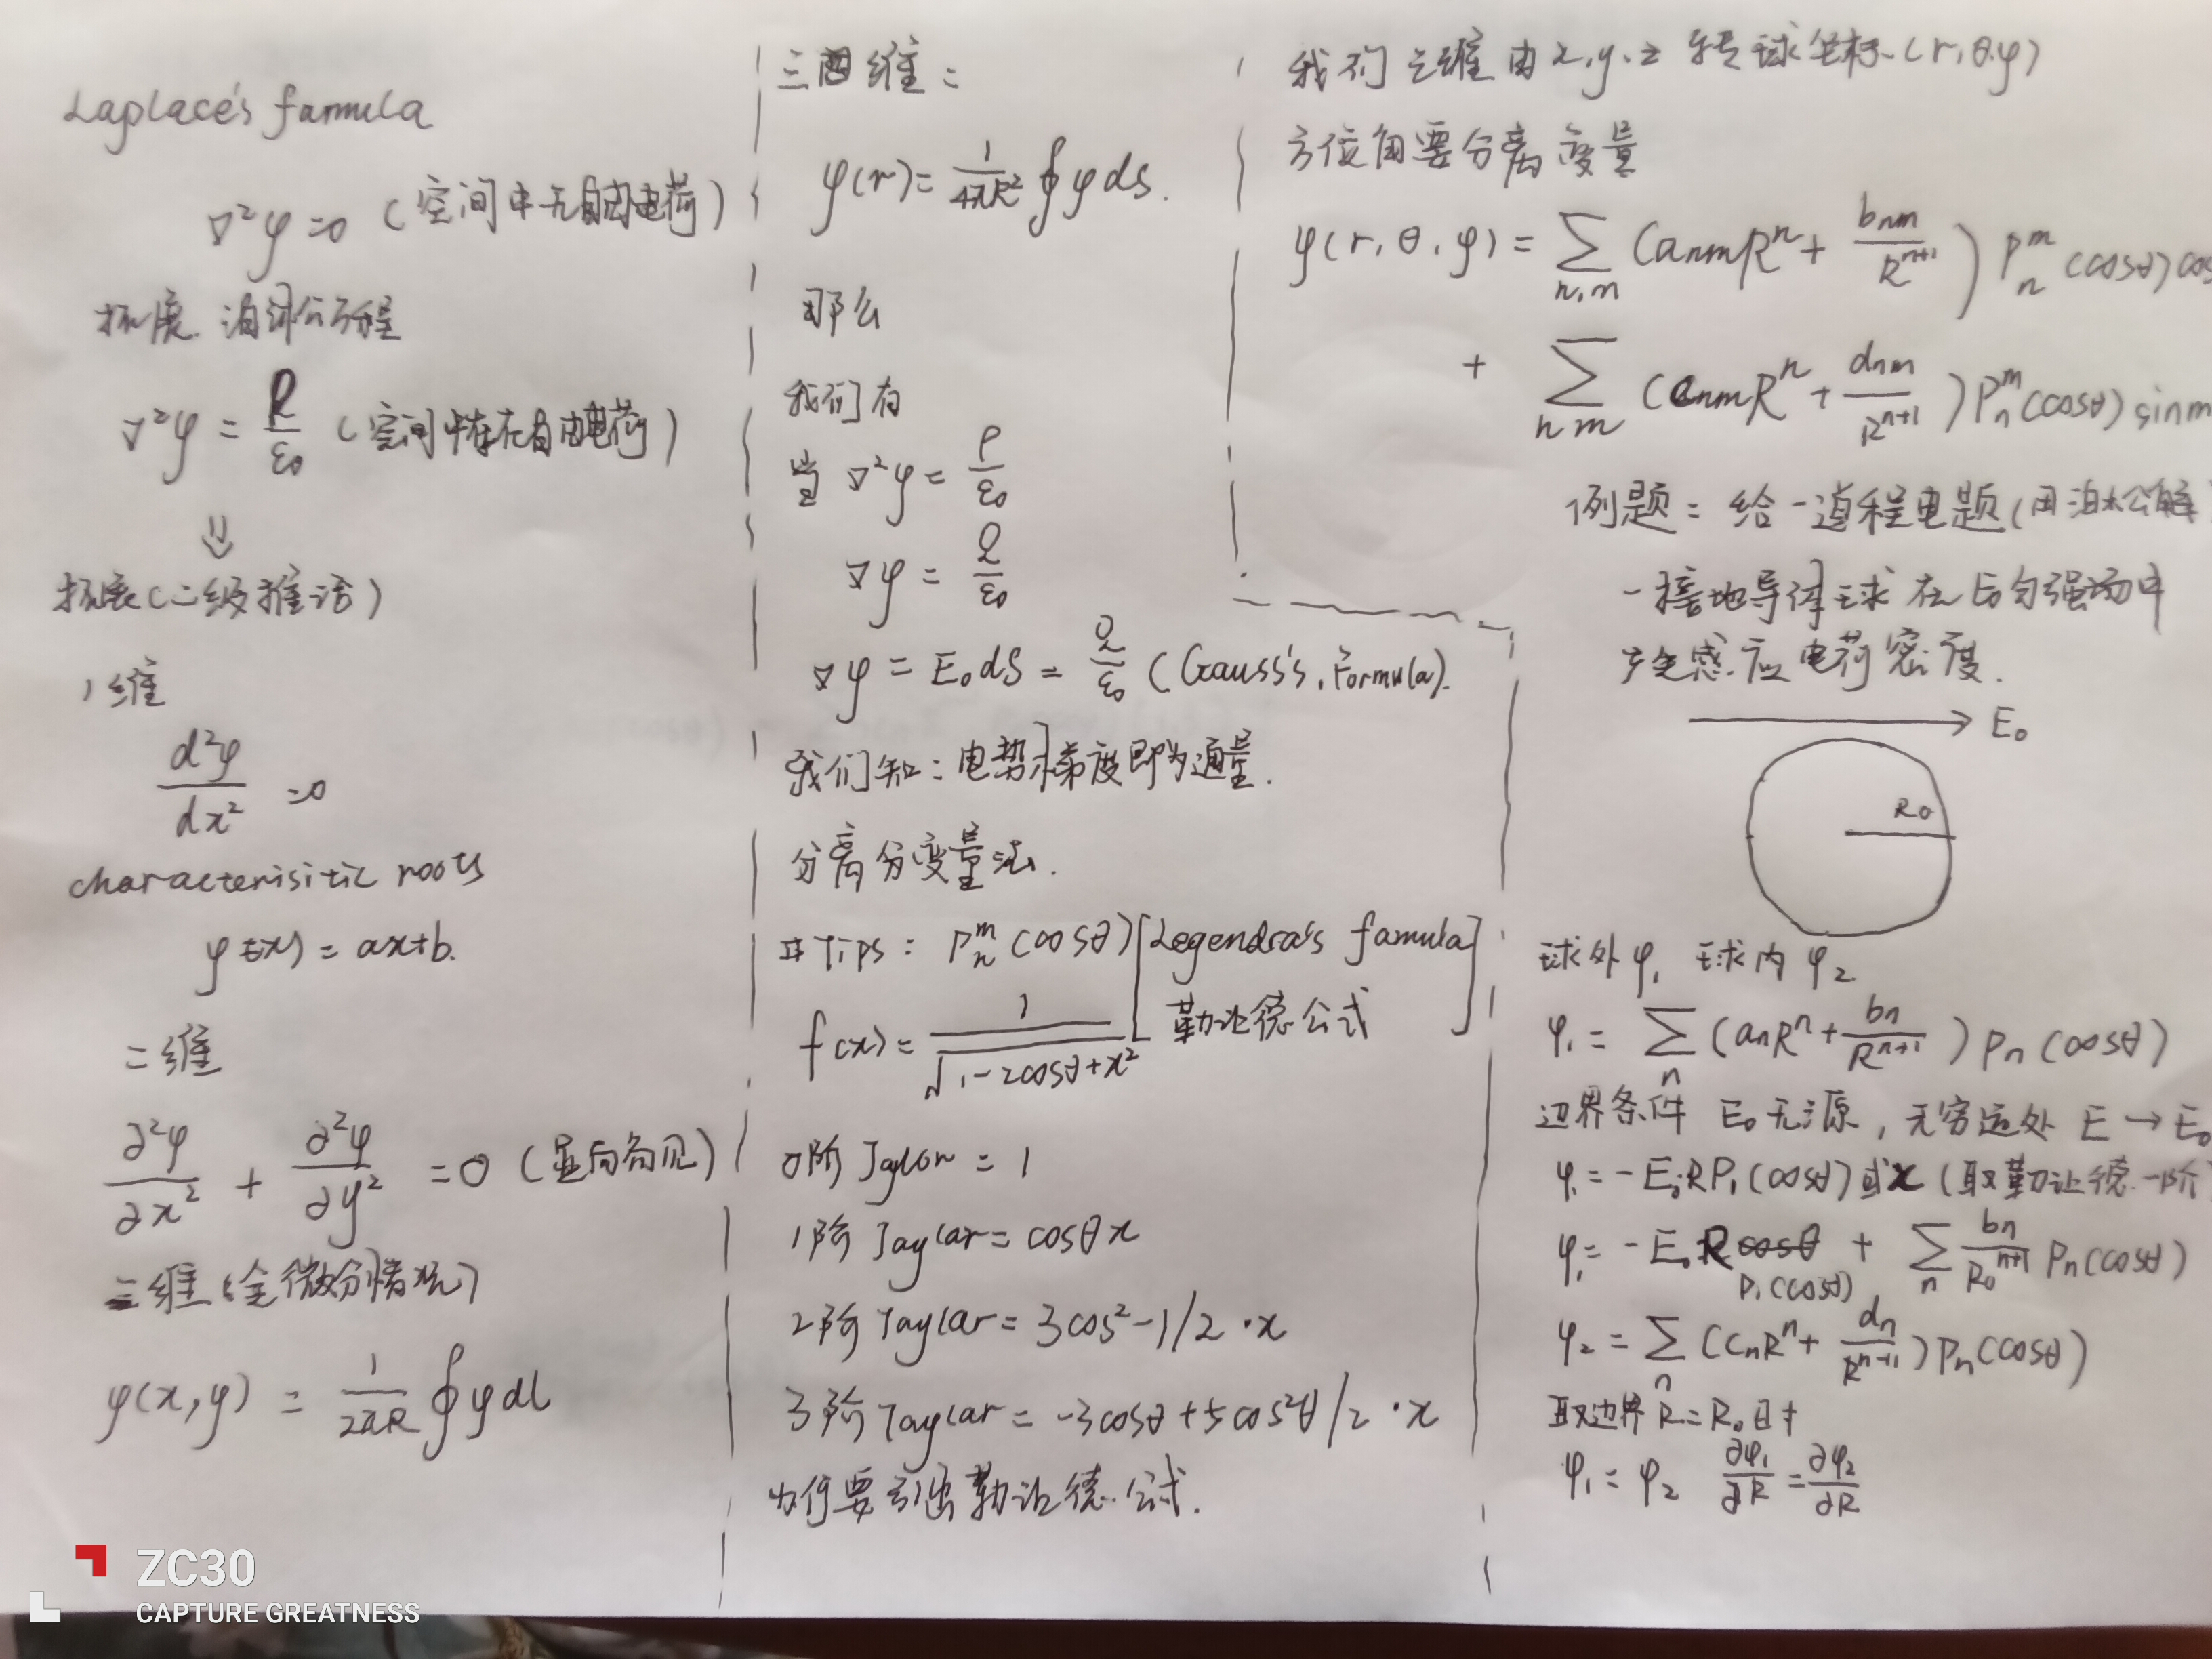 Laplace's famula
∇²φ=0 (空间中无自由电荷)
拓展.泊讼公方程
∇²φ = R/ε₀ (空间中存在自由电荷)
⇓
拓展(二级推话)
1维
d²φ/dx² =0
characterisitic roots
φ(x) = ax+b.
二维
∂²φ/∂x² + ∂²φ/∂y² =0
三维(全微分情况)
φ(x,y) = 1/2πR ∮φdl
三维:
φ(r)= 1/4πR² ∮φds.
那么
我们有
当 ∇²φ = ρ/ε₀
∇φ = Q/ε₀
∇φ = E₀ds = Q/ε₀ (Gauss's. Formula).
我们知:电势梯度即为通量.
分离分变量法.
# Tips: Pₙᵐ(cosθ) [Legendra's famula
勒让德公式]
f(x)= 1/√(1-2cosθ+x²)
0阶 Taylor = 1
1阶 Taylar= cosθx
2阶 Taylar= 3cos²-1/2·x
3阶 Taylar= -3cosθ+5cos²θ/2·x
为何要引出勒让德公式.
我们三维由x.y.z转球坐标(r,θ.φ)
方位角要分离变量
φ(r,θ,φ)= ∑n,m (anmRⁿ+ bnm/Rⁿ⁺¹) Pₙᵐ(cosθ)cos
+ ∑n m (cnmRⁿ+ dnm/Rⁿ⁺¹)Pₙᵐ(cosθ)sinm
例题:给一道程电题(用泊松公解
一接地导体球在E₀匀强场中
产生感应电荷密度.
E₀
R₀
球外φ₁ 球内φ₂
φ₁= ∑n (anRⁿ+ bn/Rⁿ⁺¹) pn(cosθ)
边界条件 E₀无源,无穷远处 E→E₀
φ₁=-E₀RP₁(cosθ)或x(取勒让德一阶
φ₁= -E₀R cosθ P₁(cosθ) + ∑n bn/R₀ⁿ⁺¹ Pn(cosθ)
φ₂ = ∑n (cnRⁿ+ dn/Rⁿ⁺¹)Pn(cosθ)
取边界R=R₀时
φ₁=φ₂ ∂φ₁/∂R = ∂φ₂/∂R
ZC30
CAPTURE GREATNESS